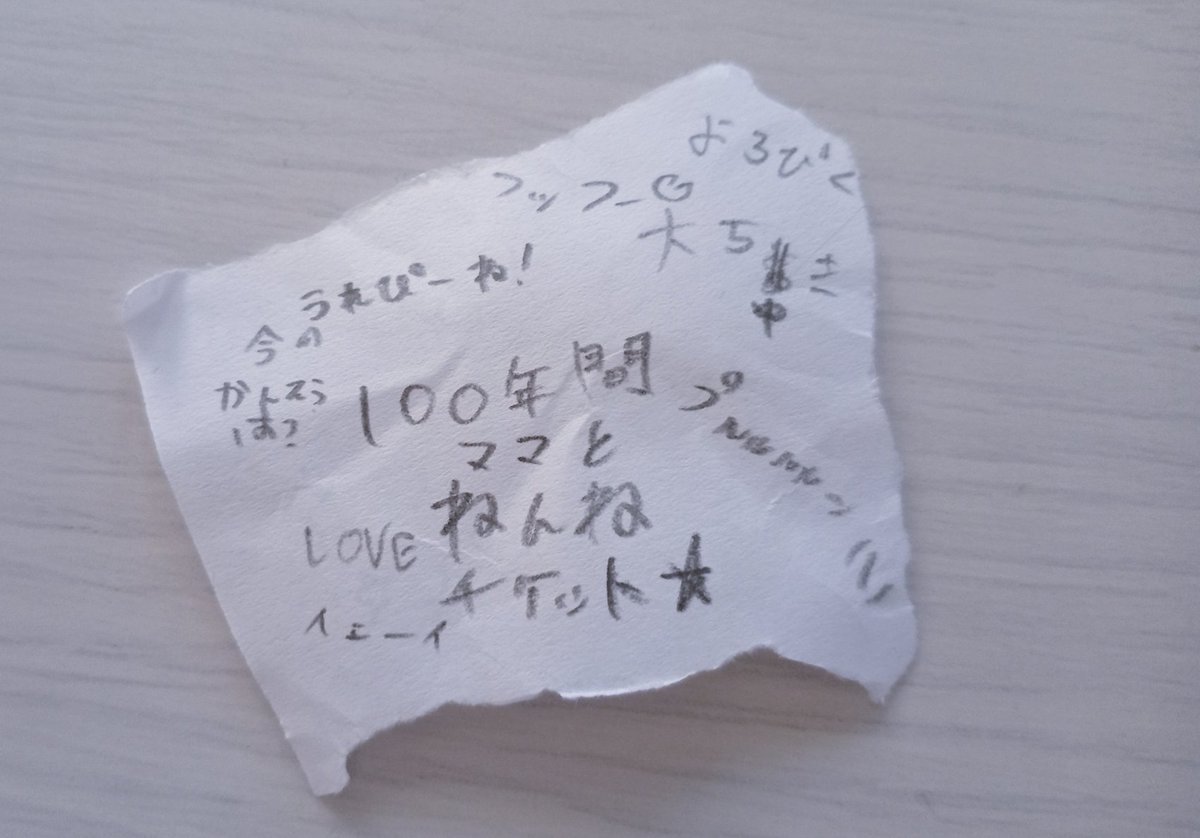 よろぴく
フッフ〜
大ち
うれぴーね!
今の
かんそう
は?
100年間
ママと
ねんね
チケット★
LOVE
イェーイ